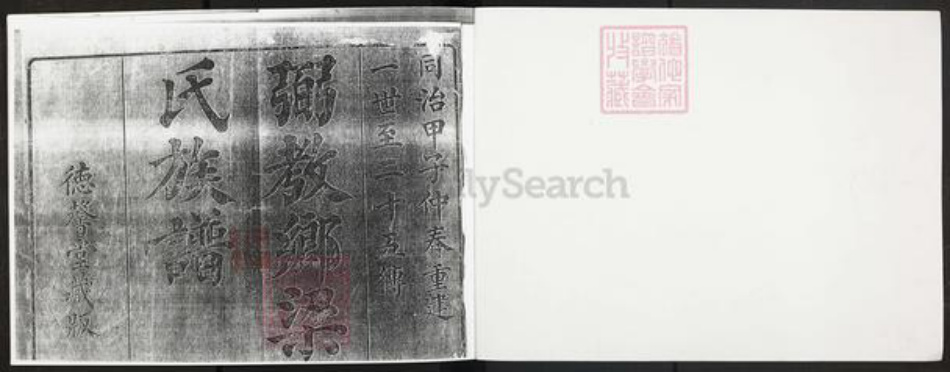 同治甲子仲春重述
一世至二十五傳
弼教鄉梁
氏族譜
德馨堂藏版